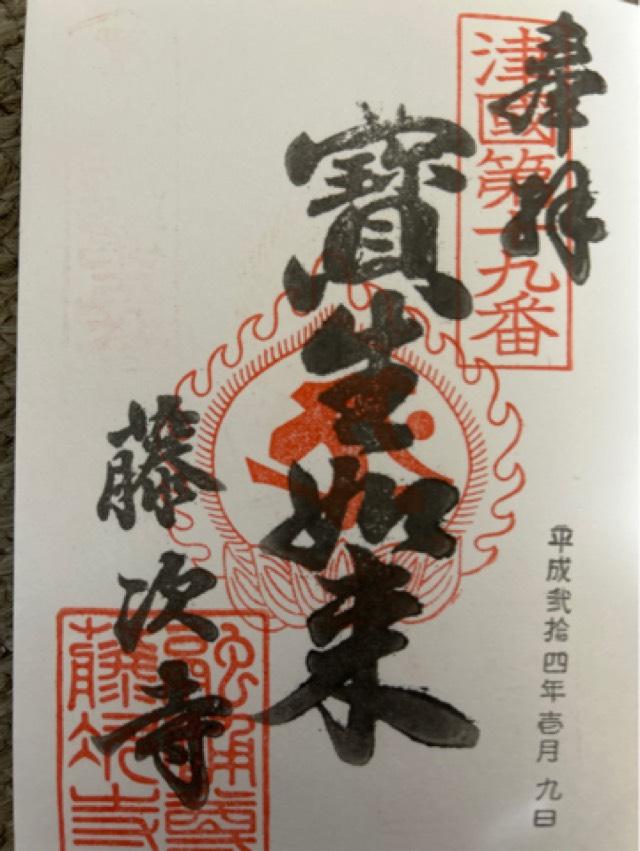 奉拝
津國第十九番
寶生如来
藤次寺
融通尊
藤次寺
平成弐拾四年壱月九日